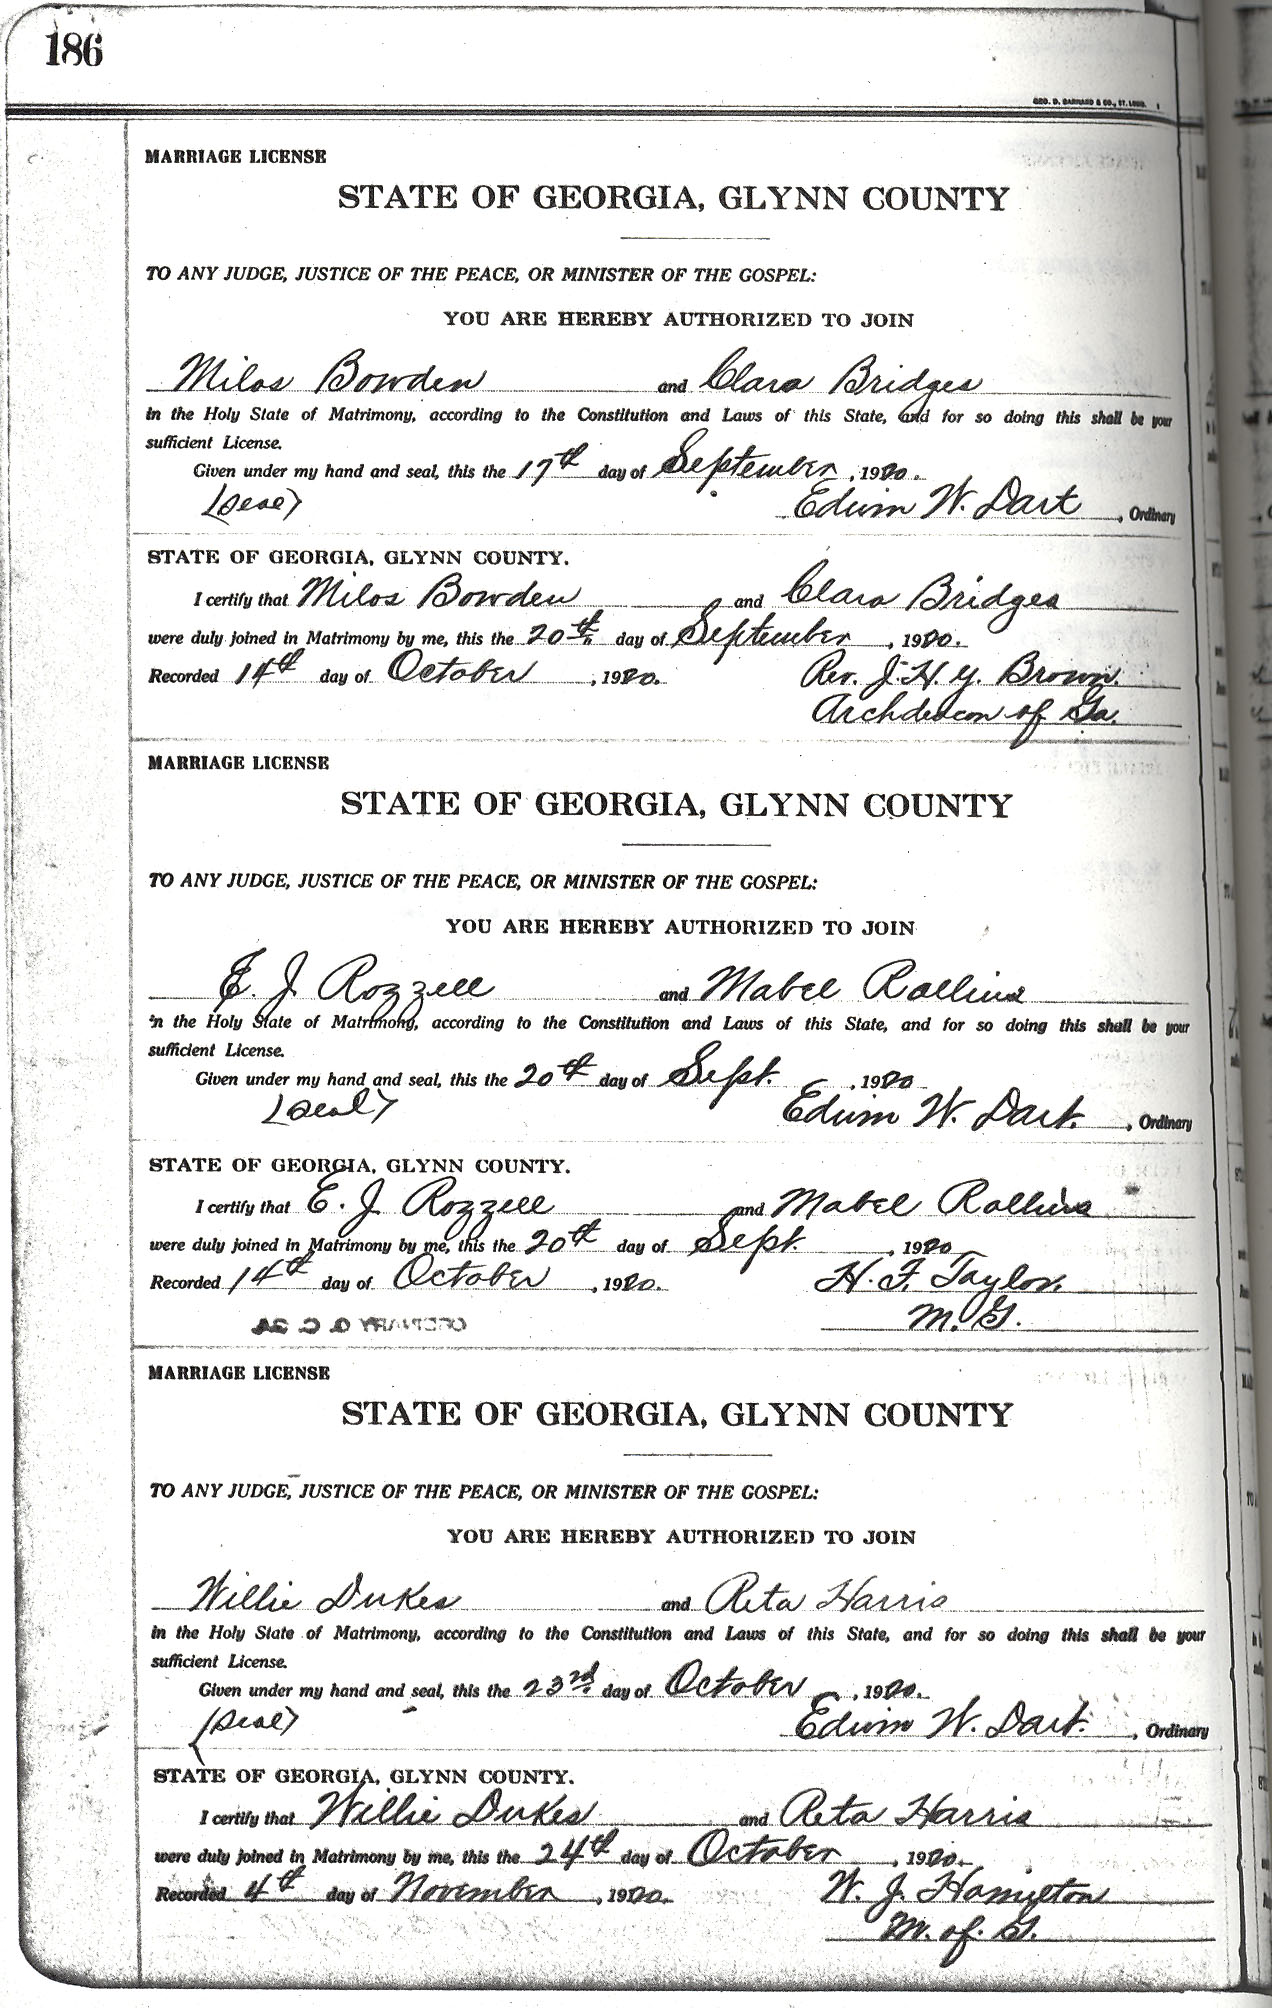 186
GEO. D. BARNARD & CO., ST. LOUIS.
MARRIAGE LICENSE
STATE OF GEORGIA, GLYNN COUNTY
TO ANY JUDGE, JUSTICE OF THE PEACE, OR MINISTER OF THE GOSPEL:
YOU ARE HEREBY AUTHORIZED TO JOIN
Milos Bowden and Clara Bridges
in the Holy State of Matrimony, according to the Constitution and Laws of this State, and for so doing this shall be your
sufficient License.
Given under my hand and seal, this the 17th day of September, 1920.
(Seal) Edwin W. Dart, Ordinary
STATE OF GEORGIA, GLYNN COUNTY.
I certify that Milos Bowden and Clara Bridges
were duly joined in Matrimony by me, this the 20th day of September, 1920.
Recorded 14th day of October, 1920. Rev. J. H. Y. Brown.
Archdeacon of Ga.
MARRIAGE LICENSE
STATE OF GEORGIA, GLYNN COUNTY
TO ANY JUDGE, JUSTICE OF THE PEACE, OR MINISTER OF THE GOSPEL:
YOU ARE HEREBY AUTHORIZED TO JOIN
E. J. Rozzell and Mabel Rollins
in the Holy State of Matrimony, according to the Constitution and Laws of this State, and for so doing this shall be your
sufficient License.
Given under my hand and seal, this the 20th day of Sept., 1920
(Seal) Edwin W. Dart., Ordinary
STATE OF GEORGIA, GLYNN COUNTY.
I certify that E. J. Rozzell and Mabel Rollins
were duly joined in Matrimony by me, this the 20th day of Sept., 1920
Recorded 14th day of October, 1920. H. F. Taylor.
M. G.
ORDINARY G. C. GA.
MARRIAGE LICENSE
STATE OF GEORGIA, GLYNN COUNTY
TO ANY JUDGE, JUSTICE OF THE PEACE, OR MINISTER OF THE GOSPEL:
YOU ARE HEREBY AUTHORIZED TO JOIN
Willie Dukes and Reta Harris
in the Holy State of Matrimony, according to the Constitution and Laws of this State, and for so doing this shall be your
sufficient License.
Given under my hand and seal, this the 23rd day of October, 1920.
(Seal) Edwin W. Dart., Ordinary
STATE OF GEORGIA, GLYNN COUNTY.
I certify that Willie Dukes and Reta Harris
were duly joined in Matrimony by me, this the 24th day of October, 1920.
Recorded 4th day of November, 1920. W. J. Hamilton
M. of G.